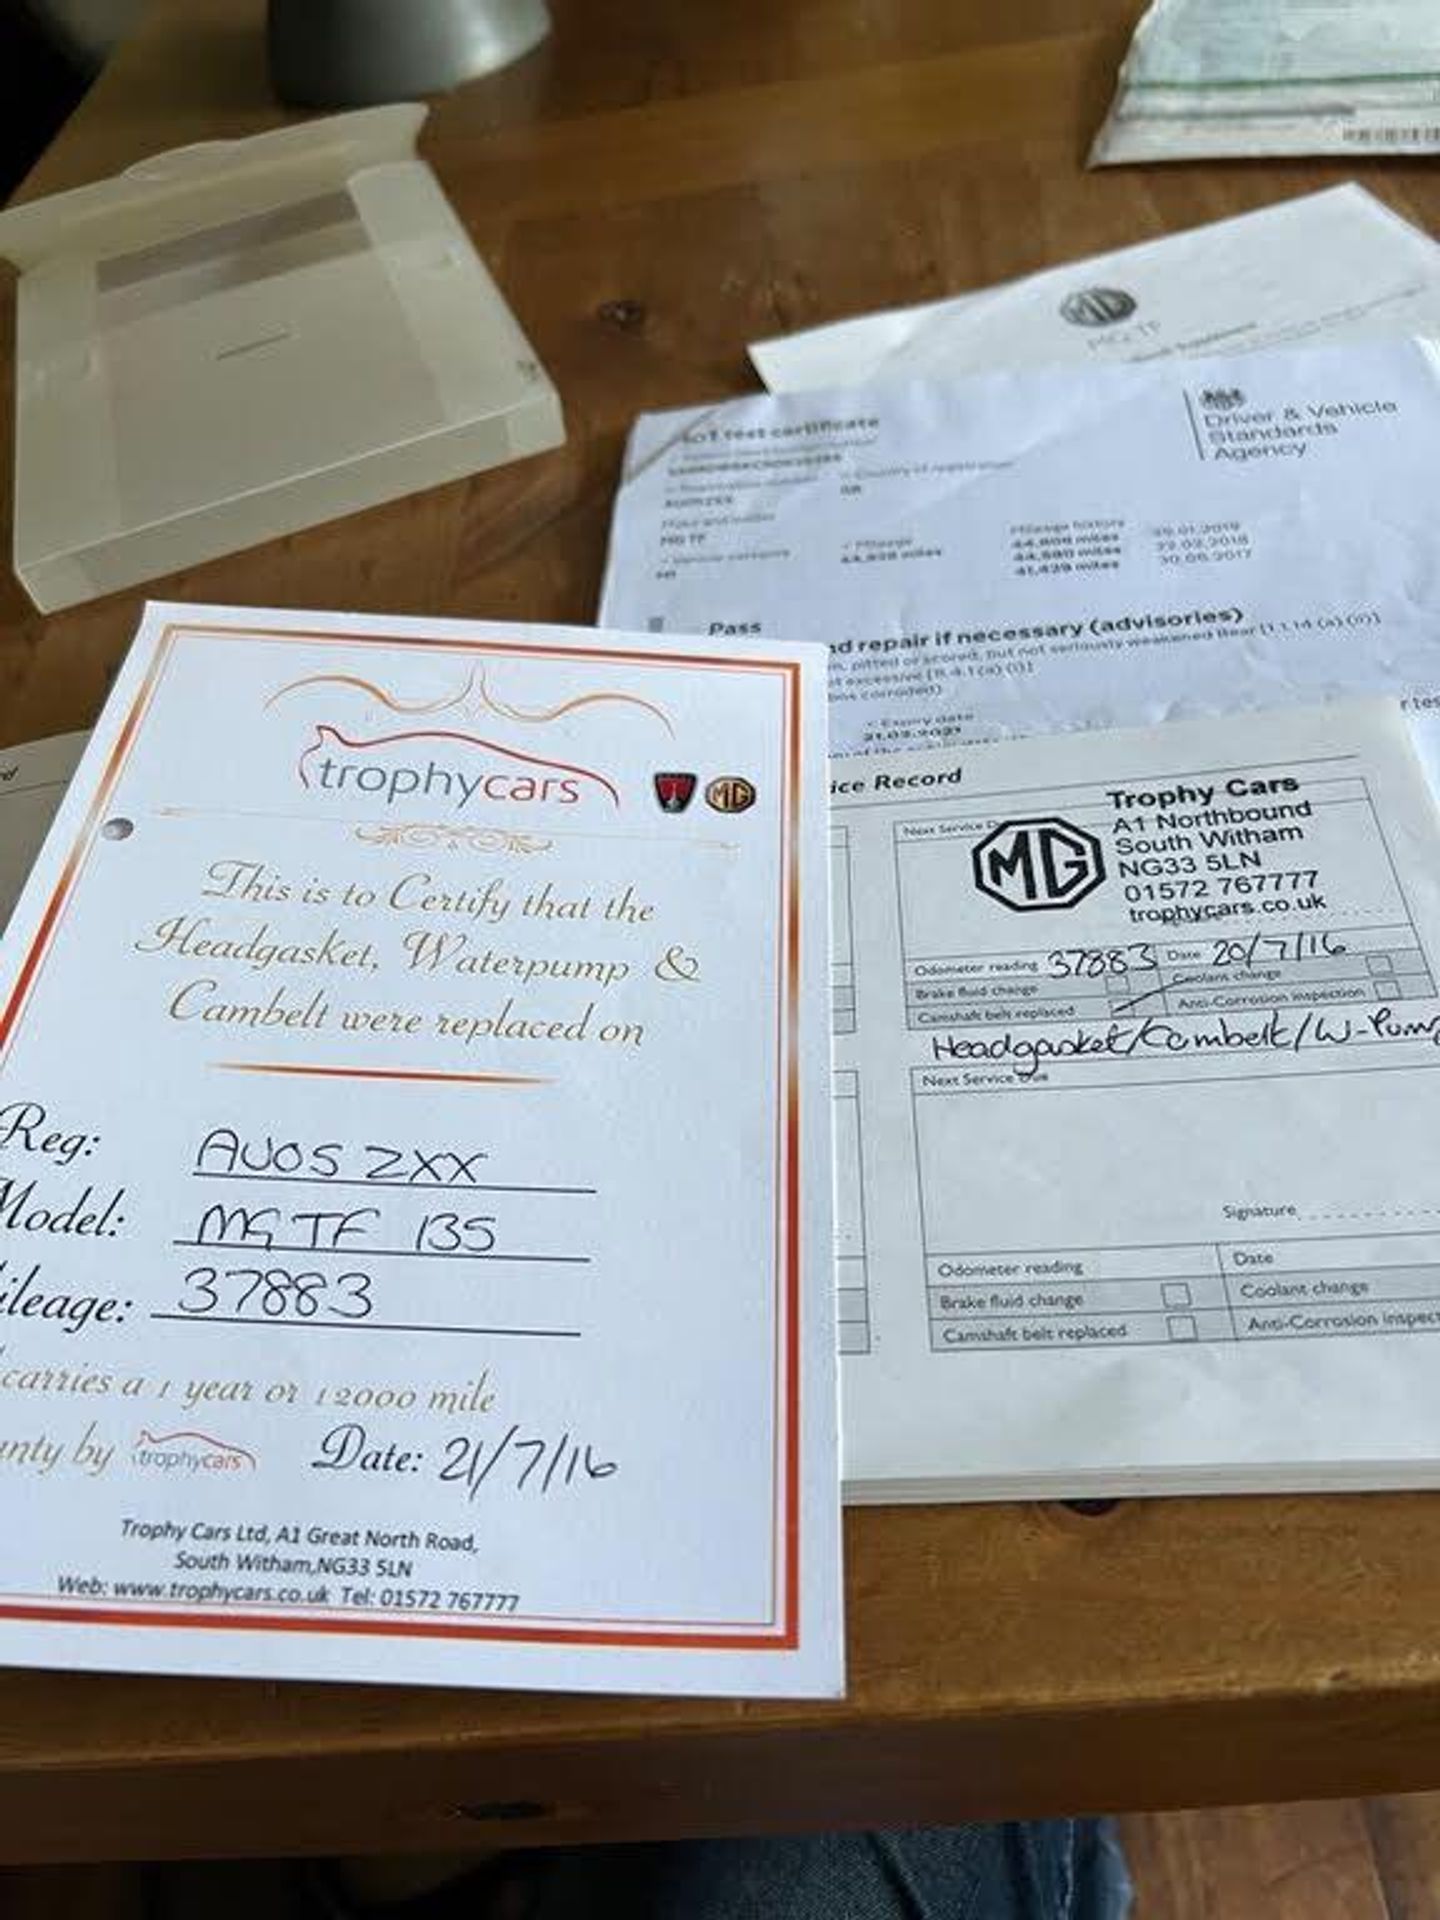 trophycars
MG
This is to Certify that the
Headgasket, Waterpump &
Cambelt were replaced on
Reg: AU05 2XX
Model: MG TF 135
ileage: 37883
carries a 1 year or 12000 mile
unty by trophycars Date: 21/7/16
Trophy Cars Ltd, A1 Great North Road,
South Witham,NG33 5LN
Web: www.trophycars.co.uk Tel: 01572 767777
MG
MG TF
test certificate
Driver & Vehicle
Standards
Agency
Country of registration
GB
MG TF
Mileage
Mileage history
Pass
nd repair if necessary (advisories)
pitted or scored, but not seriously weakened Rear [1.1.14 (a) (ii)]
Expiry date
ice Record
Next Service D
MG
Trophy Cars
A1 Northbound
South Witham
NG33 5LN
01572 767777
trophycars.co.uk
Odometer reading 37883 Date 20/7/16
Brake fluid change Coolant change
Camshaft belt replaced Anti-Corrosion inspection
Headgasket/Cambelt/W-Pump
Next Service Due
Signature
Odometer reading Date
Brake fluid change Coolant change
Camshaft belt replaced Anti-Corrosion inspect